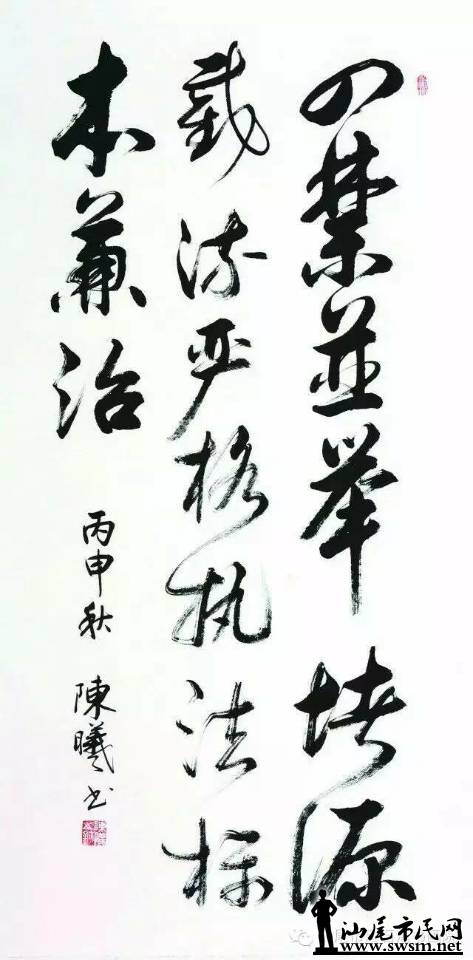 四禁並举堵源
截流严格执法标
本兼治
丙申秋 陳曦书
汕尾市民网
www.swsm.net